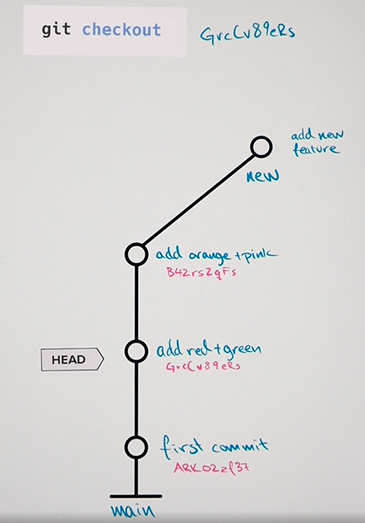 git checkout GrcCv89eRs
add new
feature
new
add orange + pink
B42rs2qFs
HEAD
add red + green
GrcCv89eRs
first commit
ARK02zf37
main